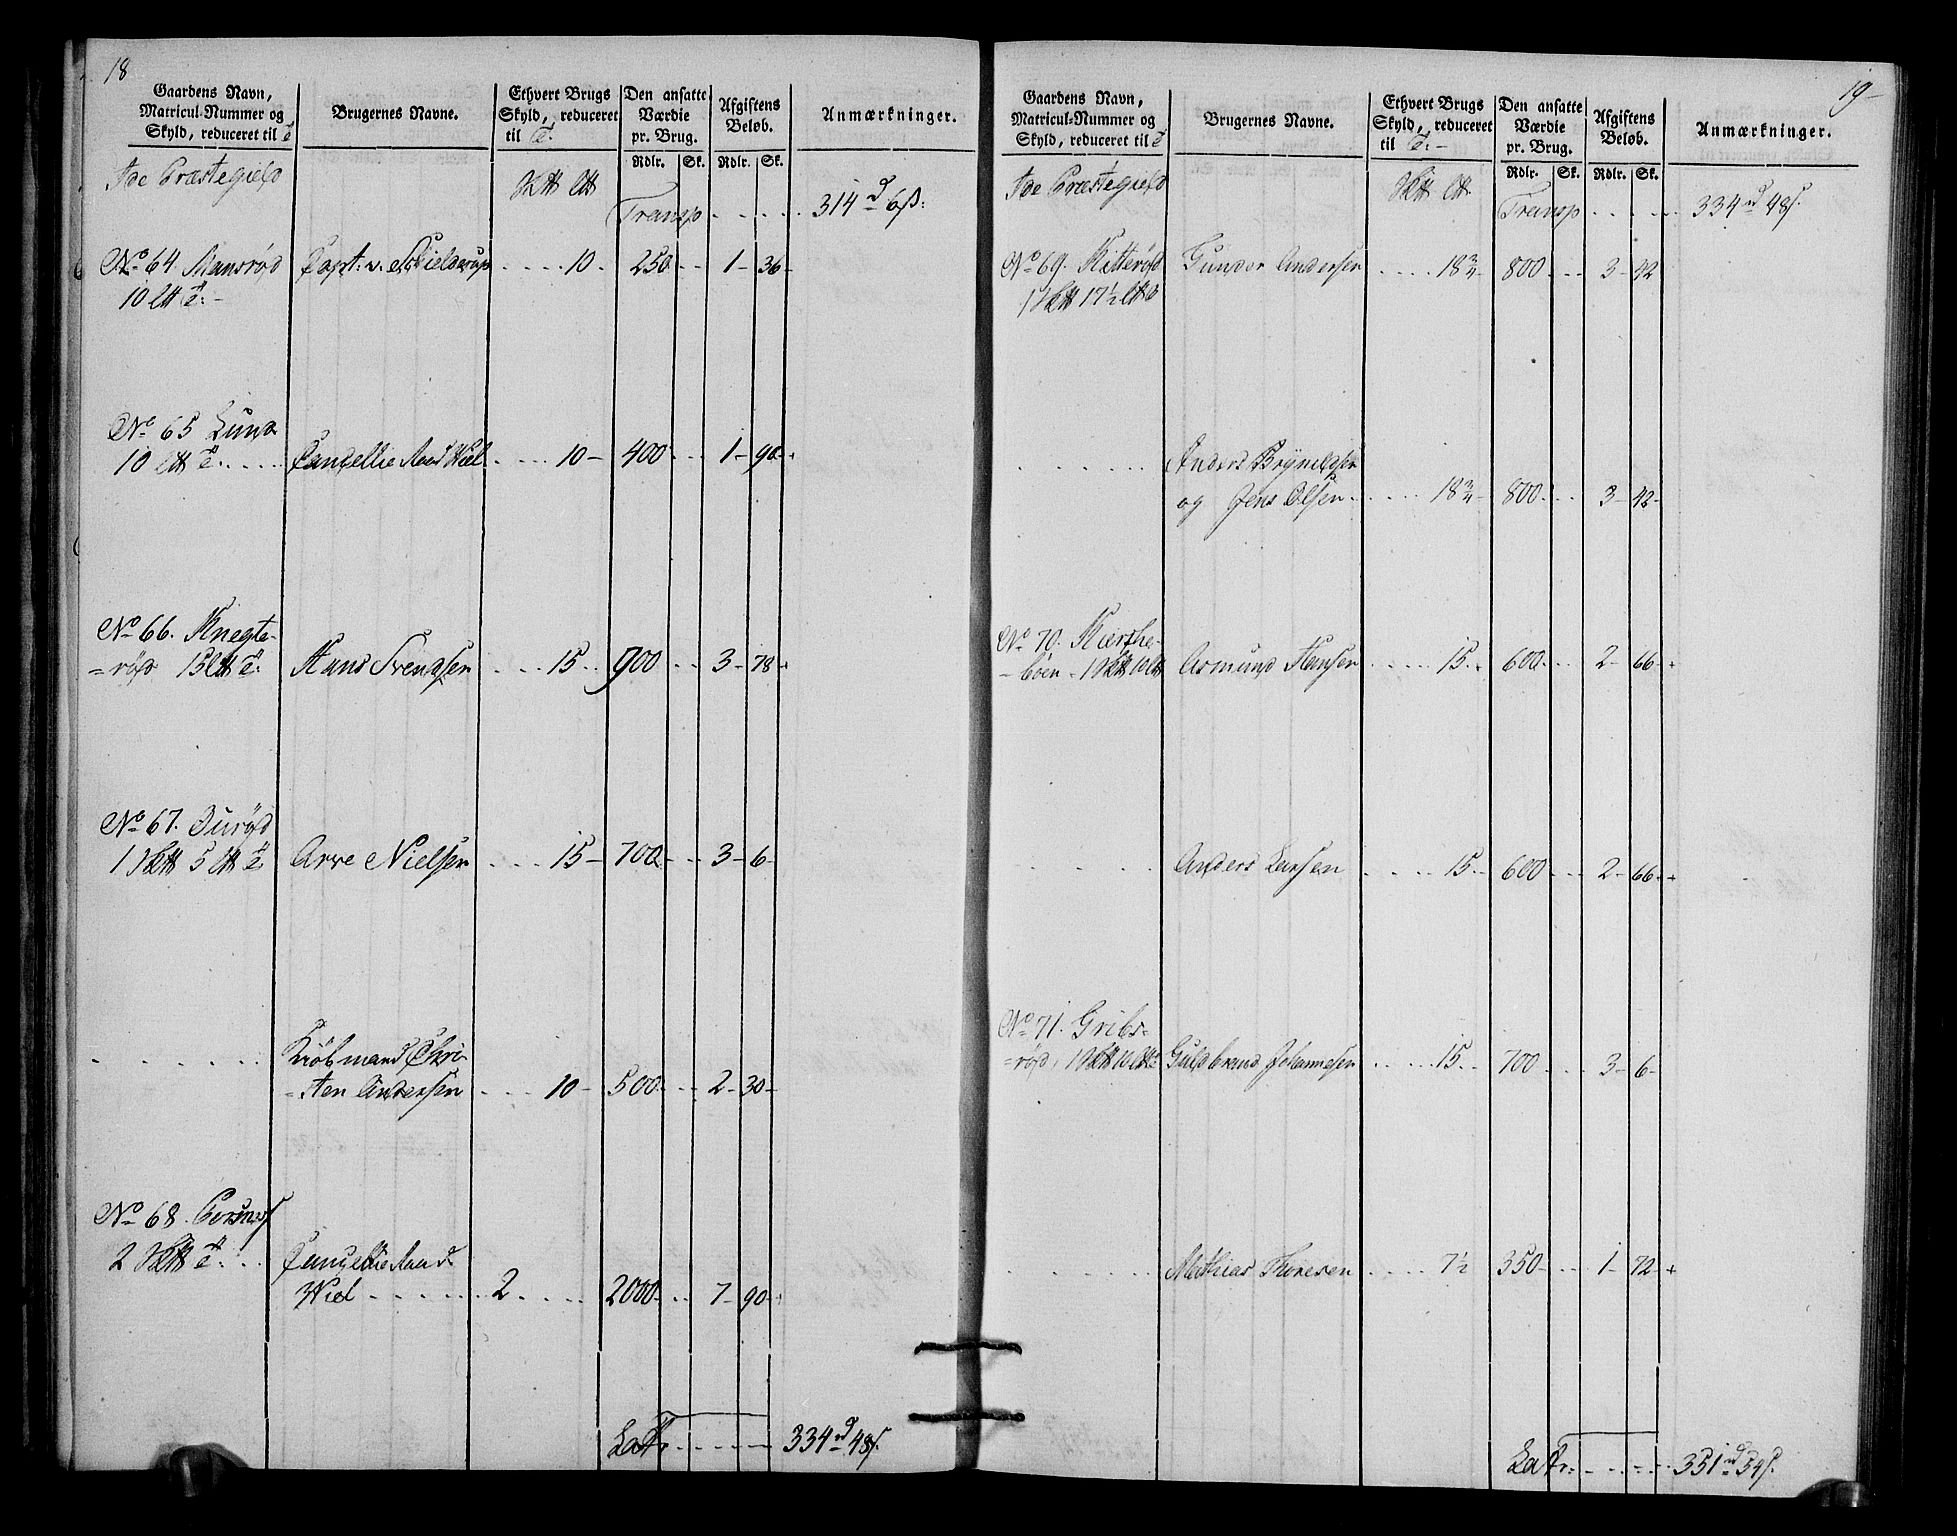 18
Gaardens Navn, Matricul-Nummer og Skyld, reduceret til
Brugernes Navne.
Ethvert Brugs Skyld, reduceret til
Den ansatte Værdie pr. Brug.
Afgiftens Beløb.
Anmærkninger.
Rdlr. Sk. Rdlr. Sk.
Ide Præstegield
Transp . . . . . 314 6ß:
No 64 10 10 - 250 - 1 - 36 -
No 65 Lund
10 Cancellie Raad Wiel . . . 10 - 400 - 1 - 90 -
No 66. Knegte-
=rød 15 Hans Svendsen . . . 15 . . 900 - 3 - 78
No 67.
1 5 Arve Nielsen . . . 15 - 700 - 3 - 6 -
Kiöbmand Chri-
=sten Andersen . . . 10 - 500 - 2 - 30 -
No 68.
2 Cancellie Raad
Wiel . . . . . 2 . . . . 2000 - 7 - 90 -
Latr. . . . . . 334 48ß.
19
Gaardens Navn, Matricul-Nummer og Skyld, reduceret til
Brugernes Navne.
Ethvert Brugs Skyld, reduceret til
Den ansatte Værdie pr. Brug.
Afgiftens Beløb.
Anmærkninger.
Rdlr. Sk. Rdlr. Sk.
Ide Præstegield
Transp . . . . . 334 48ß.
No 69. Kitterød Gunder Andersen . . . 18¾ - 800 - 3 - 42
1 17½
Anders Brynildsen
og Jens Olsen . . . 18¾ - 800 - 3 - 42 -
No 70.
=böen 1 10 Asmund Hansen . . . 15 . . 600 - 2 - 66 -
Anders Larsen . . . 15 - 600 - 2 - 66 -
No 71. Gribs=
=rød, 1 10 Guldbrand Johannesen . . . 15 . . 700 - 3 - 6 -
Mathias Thoresen . . . 7½ 350 - 1 - 72 -
Latr. . . . . . 351 54ß.